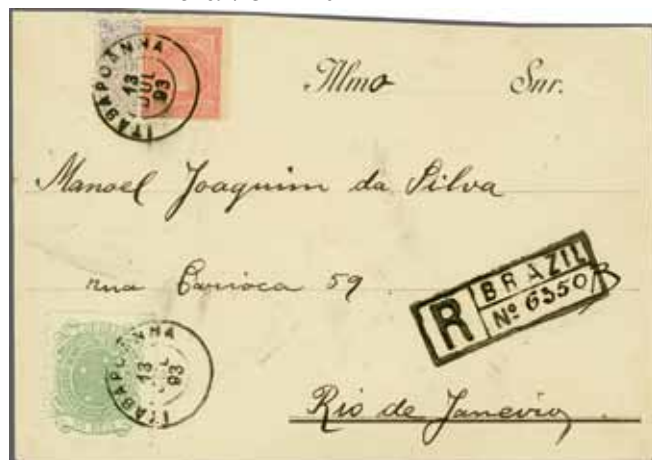 ITABAPOANHA
13
JUL
93
Illmo Snr.
Manoel Joaquim da Silva
rua Carioca 59
R BRAZIL
Nº 6350 B
ITABAPOANHA
13
JUL
93
Rio de Janeiro